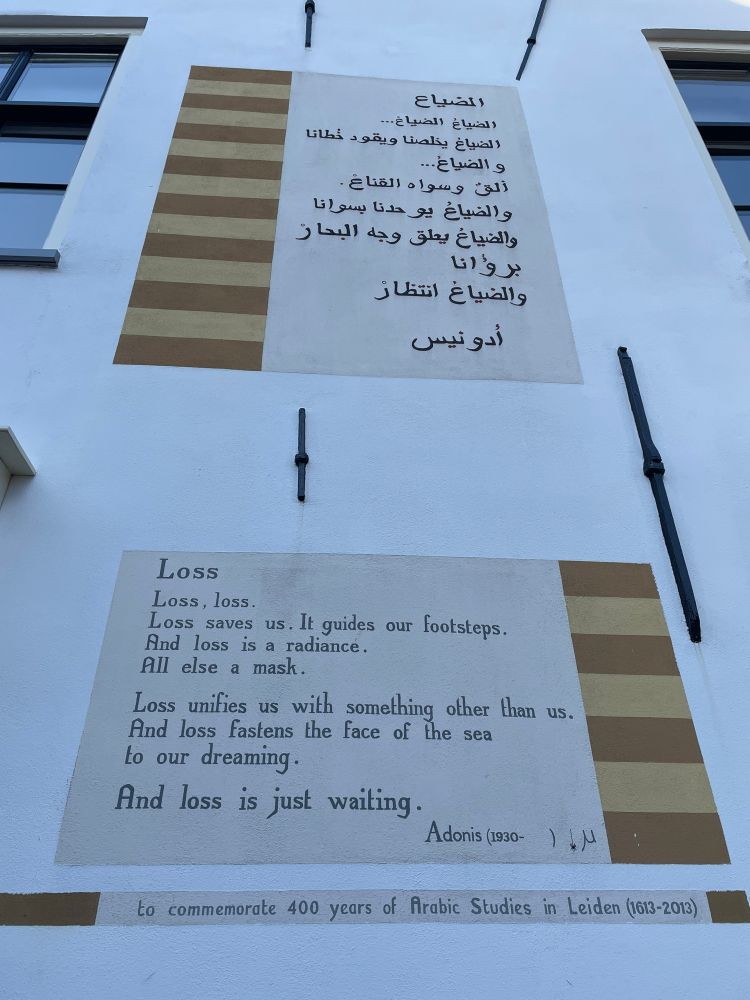 الضياع
الضياعُ الضياعْ...
الضياعُ يخلصنا ويقود خُطانا
والضياعْ...
ألقٌ وسواه القناعْ.
والضياعُ يوحدنا بسوانا
والضياعُ يعلق وجه البحارْ
برؤانا
والضياعْ انتظارْ
أدونيس
Loss
Loss, loss.
Loss saves us. It guides our footsteps.
And loss is a radiance.
All else a mask.
Loss unifies us with something other than us.
And loss fastens the face of the sea
to our dreaming.
And loss is just waiting.
Adonis (1930- )
to commemorate 400 years of Arabic Studies in Leiden (1613-2013)